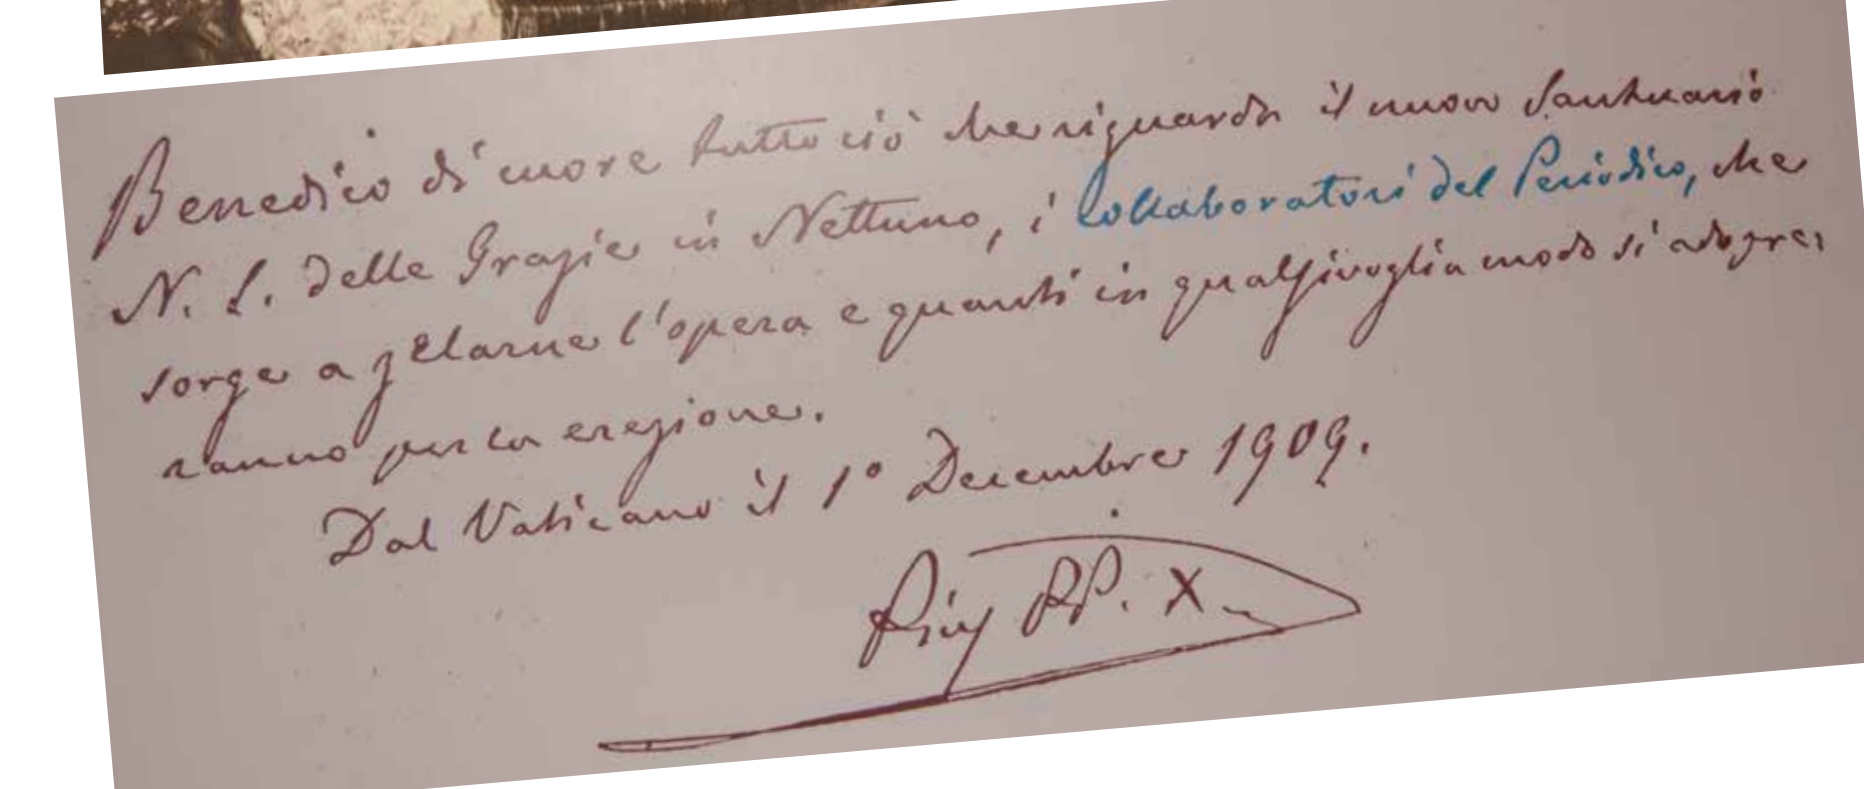 Benedico di cuore tutto ciò che riguarda il nuovo Santuario
N. S. delle Grazie in Nettuno, i Collaboratori del Periodico, che
sorge a zelarne l'opera e quanti in qualsivoglia modo si adope,
ranno per la erezione.
Dal Vaticano il 1° Decembre 1909.
Pius PP. X